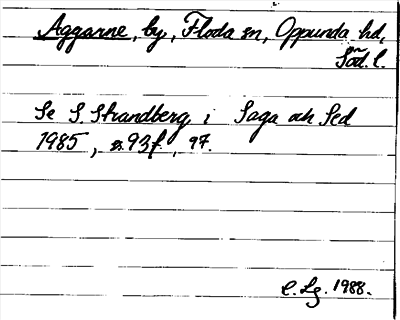 Aggarne, by, Floda sn, Oppunda hd,
Söd. l.
Se S. Strandberg i Saga och Sed
1985, s. 93f., 97.
C. Lg. 1988.